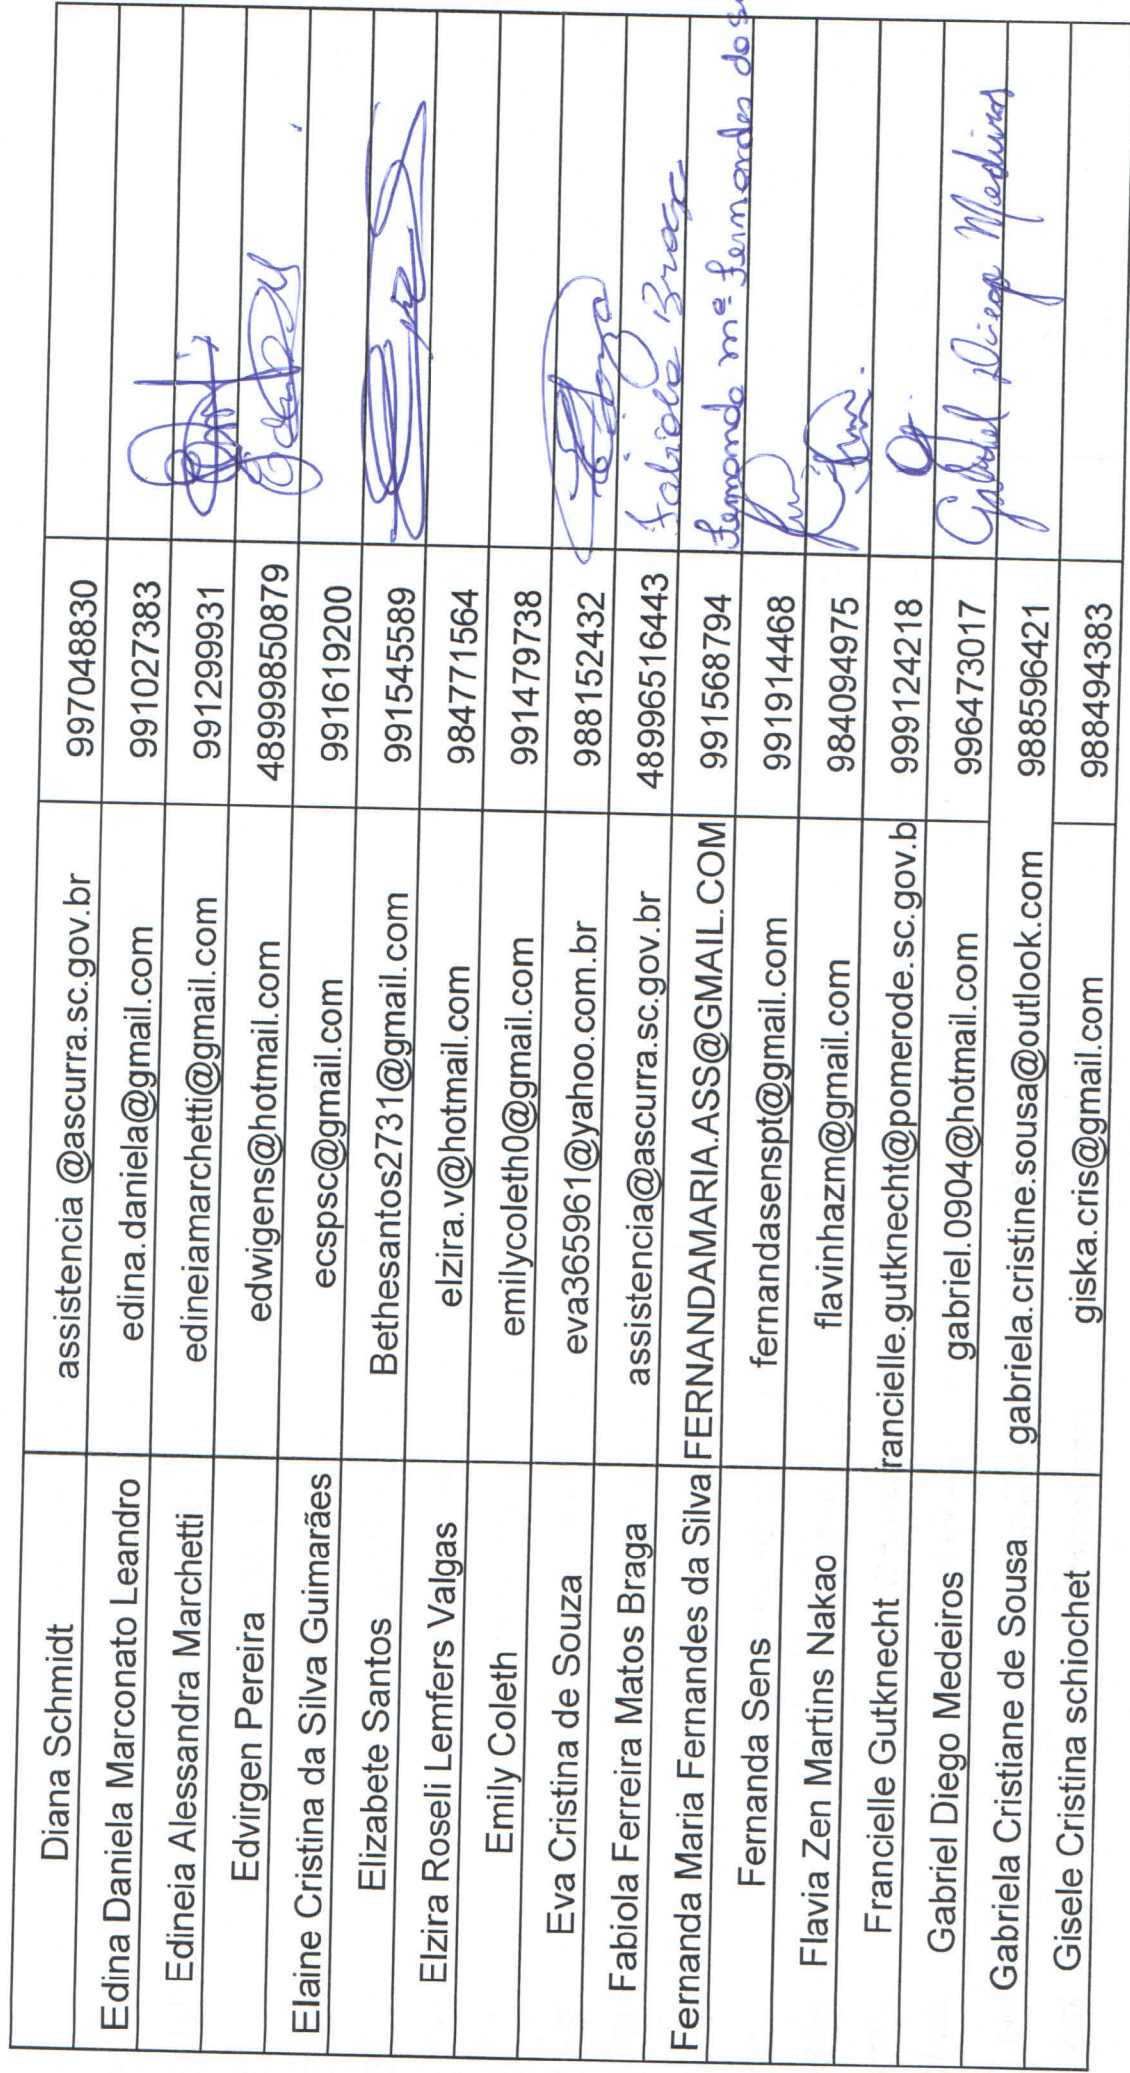 Diana Schmidt assistencia @ascurra.sc.gov.br 997048830
Edina Daniela Marconato Leandro edina.daniela@gmail.com 991027383
Edineia Alessandra Marchetti edineiamarchetti@gmail.com 991299931
Edvirgen Pereira edwigens@hotmail.com 48999850879
Elaine Cristina da Silva Guimarães ecspsc@gmail.com 991619200
Elizabete Santos Bethesantos2731@gmail.com 991545589
Elzira Roseli Lemfers Valgas elzira.v@hotmail.com 984771564
Emily Coleth emilycoleth0@gmail.com 991479738
Eva Cristina de Souza eva365961@yahoo.com.br 988152432
Fabiola Ferreira Matos Braga assistencia@ascurra.sc.gov.br 48996516443 Fabiola Braga
Fernanda Maria Fernandes da Silva FERNANDAMARIA.ASS@GMAIL.COM 991568794 Fernanda Mª Fernandes da
Fernanda Sens fernandasenspt@gmail.com 991914468
Flavia Zen Martins Nakao flavinhazm@gmail.com 984094975
Francielle Gutknecht rancielle.gutknecht@pomerode.sc.gov.b 999124218
Gabriel Diego Medeiros gabriel.0904@hotmail.com 996473017 Gabriel Diego Medeiros
Gabriela Cristiane de Sousa gabriela.cristine.sousa@outlook.com 988596421
Gisele Cristina schiochet giska.cris@gmail.com 988494383